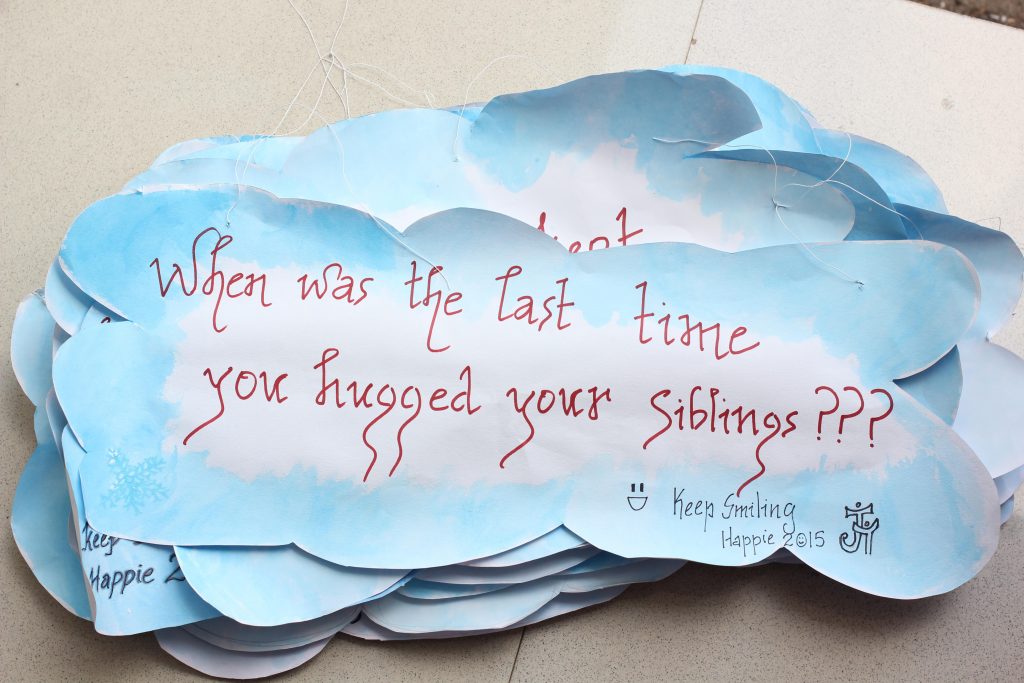 When was the last time
you hugged your siblings ???
Keep Smiling
Happie 2015
Keep
Happie 2